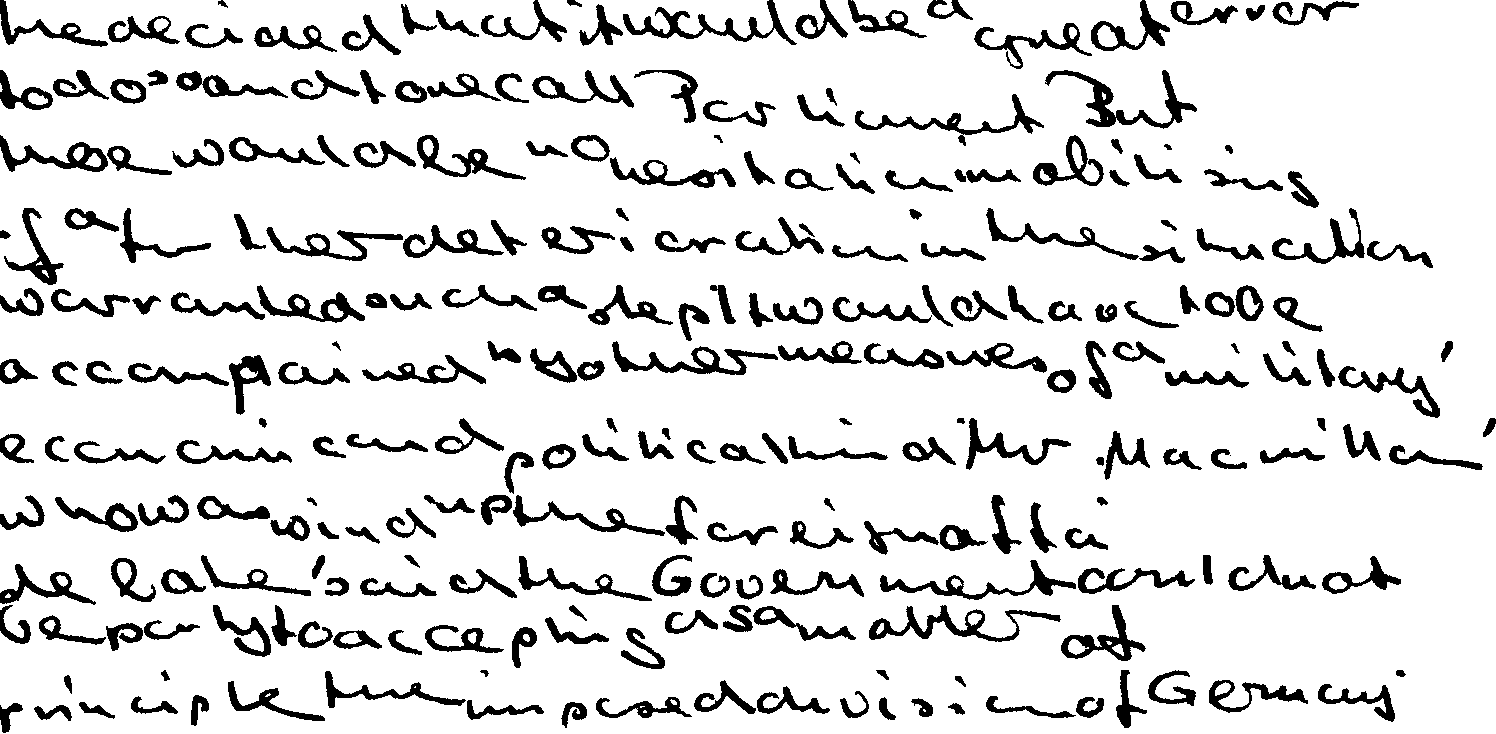 he decided that it would be a great error
to do so and to recall Parliament But
there would be no hesitation in mobilising
if a further deterioration in the situation
warranted such a step It would have to be
accompained by other measures of a military,
economic and political kind Mr. Macmillan,
who was wind up the foreign affai
debate, said the Government could not
be party to accepting as a matter of
principle the imposed division of Germany